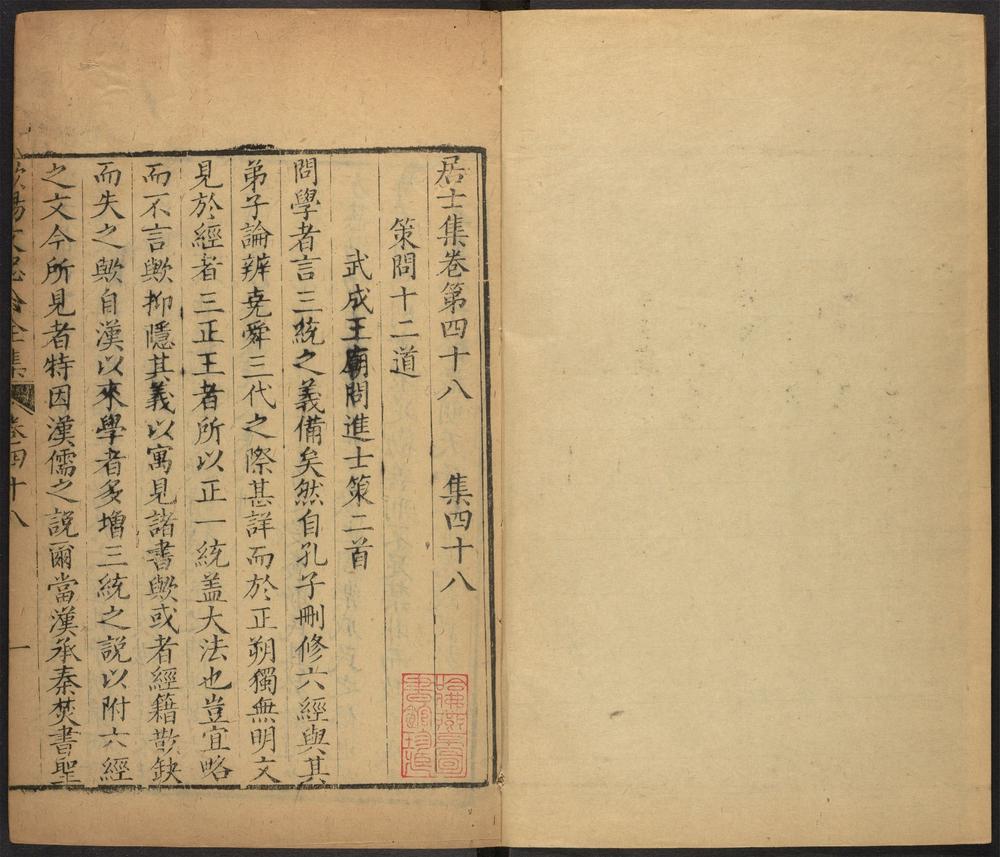 居士集卷第四十八　集四十八
策問十二道
武成王廟問進士策二首
問學者言三統之義備矣然自孔子刪修六經與其
弟子論辨堯舜三代之際甚詳而於正朔獨無明文
見於經者三正王者所以正一統盖大法也豈宜略
而不言歟抑隱其義以寓見諸書歟或者經籍散缺
而失之歟自漢以來學者多增三統之說以附六經
之文今所見者特因漢儒之說爾當漢承秦焚書聖
歐陽文忠公全集　卷四十八　一
哈佛燕京圖書館珍藏